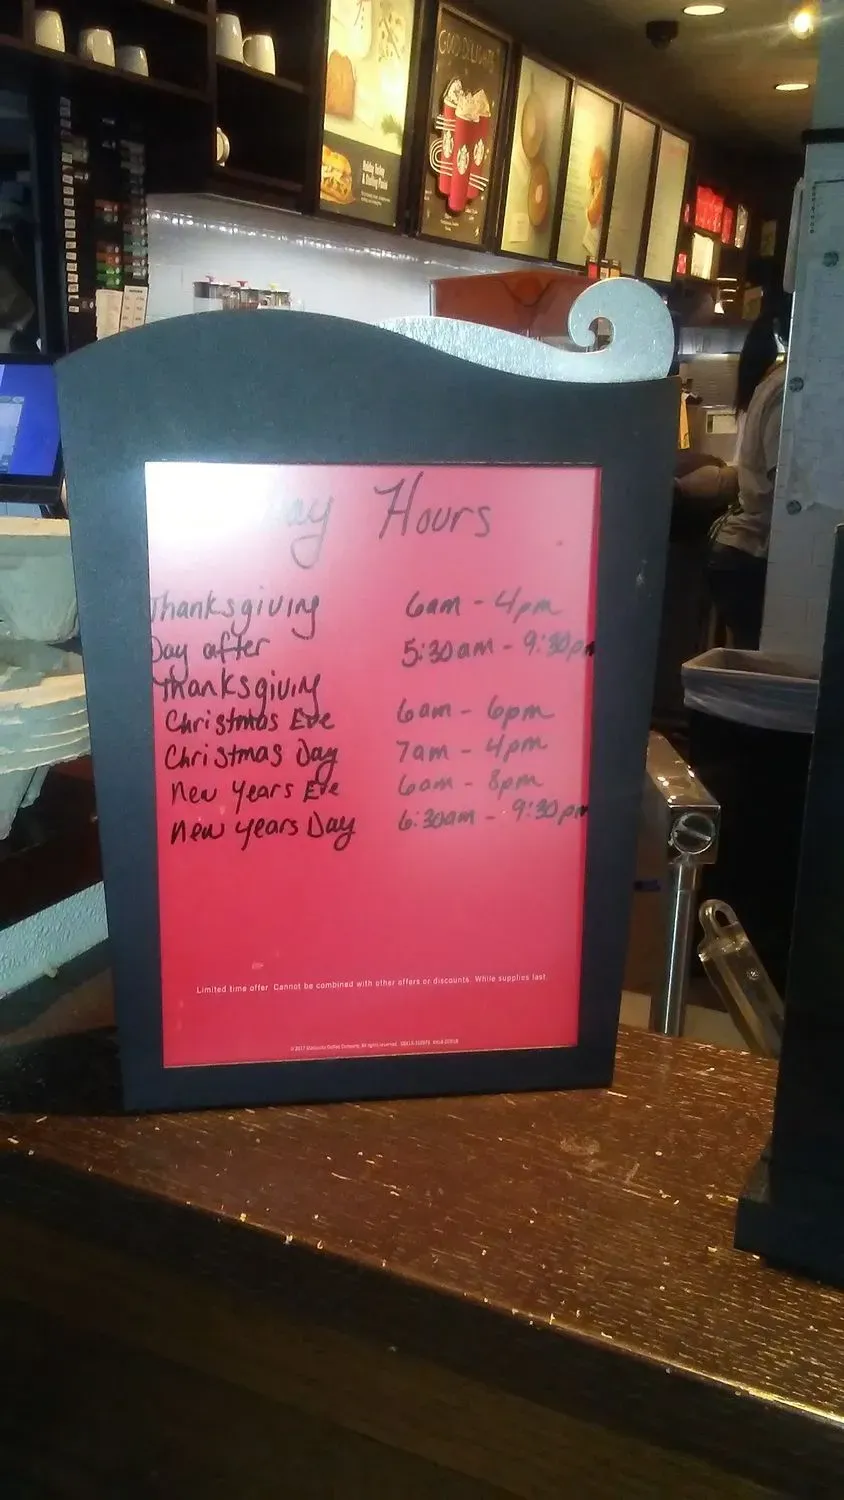 Hours
Thanksgiving 6am - 4pm
Day after 5:30am - 9:30pm
Thanksgiving
Christmas Eve 6am - 6pm
Christmas Day 7am - 4pm
New Years Eve 6am - 8pm
New Years Day 6:30am - 9:30pm
Limited time offer. Cannot be combined with other offers or discounts. While supplies last.
© 2017 Starbucks Coffee Company. All rights reserved.